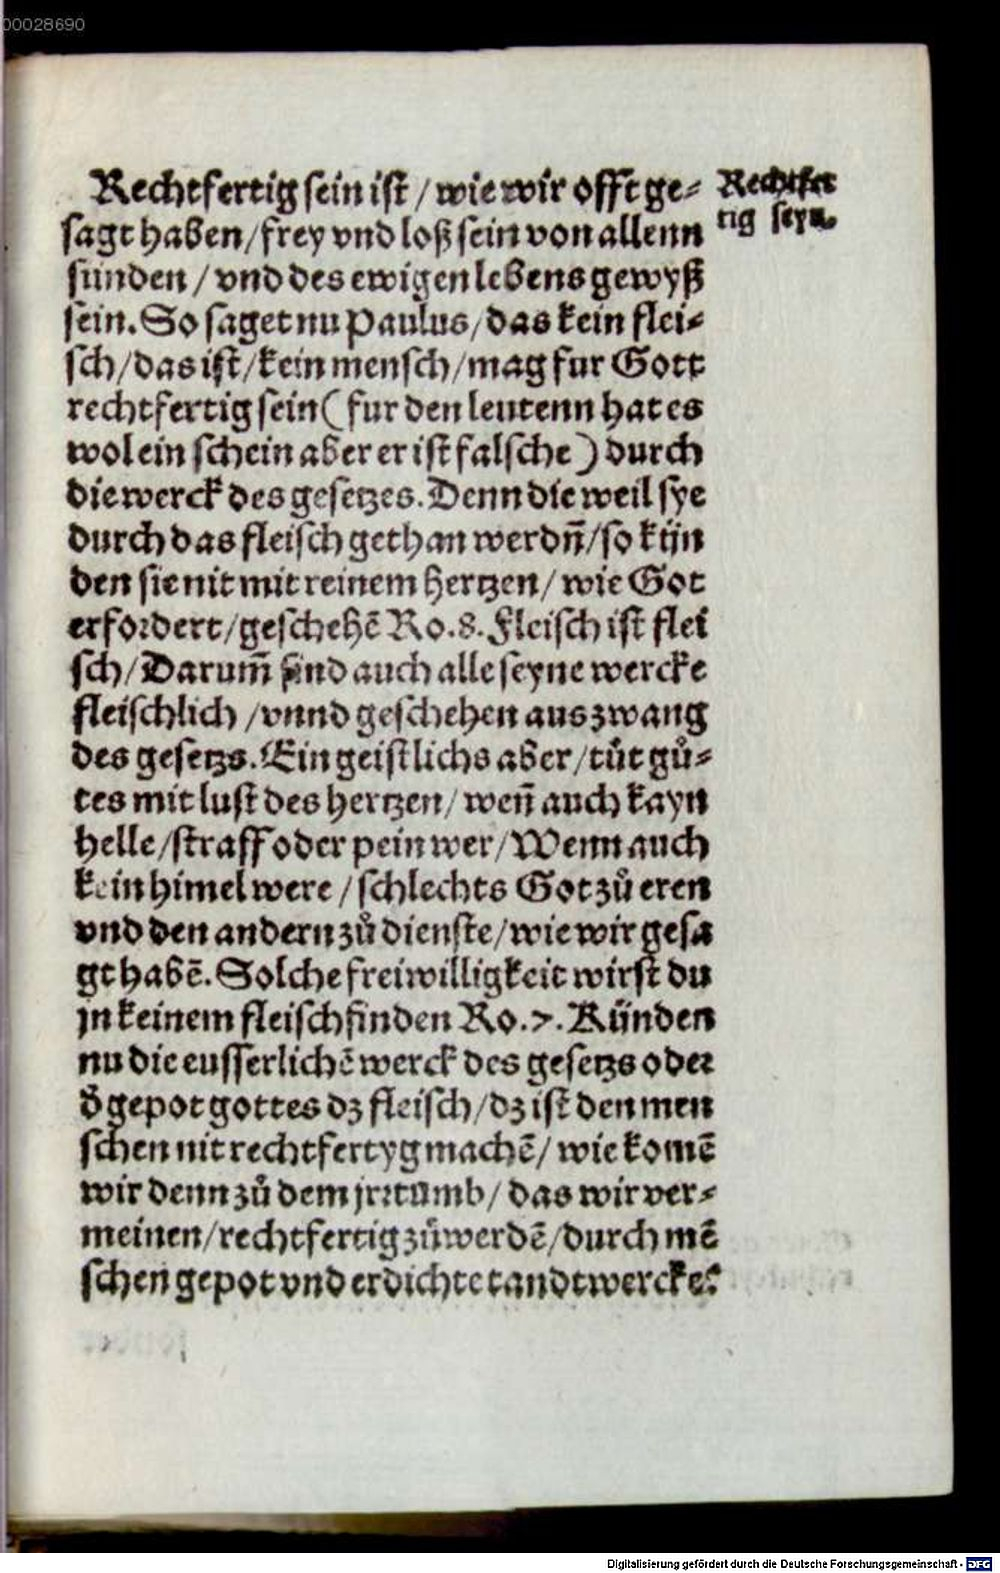 00028690
Rechtfertig sein ist / wie wir offt ge⸗
sagt haben / frey vnd loß sein von allenn
sunden / vnd des ewigen lebens gewyß
sein. So saget nu Paulus / das kein flei⸗
sch / das ist / kein mensch / mag fur Gott
rechtfertig sein ( fur den leutenn hat es
wol ein schein aber er ist falsche ) durch
die werck des gesetzes. Denn die weil sye
durch das fleisch gethan werdn̄ / so kün
den sie nit mit reinem hertzen / wie Got
erfordert / geschehē Ro. 8. Fleisch ist flei
sch / Darum̄ sind auch alle seyne wercke
fleischlich / vnnd geschehen aus zwang
des gesetzs. Ein geistlichs aber / tůt gů⸗
tes mit lust des hertzen / wen̄ auch kayn
helle / straff oder pein wer / Wenn auch
kein himel were / schlechts Got zů eren
vnd den andern zů dienste / wie wir gesa
gt habē. Solche freiwilligkeit wirst du
jn keinem fleisch finden Ro. 7. Künden
nu die eusserlichē werck des gesetzs oder
d̄ gepot gottes dz fleisch / dz ist den men
schen nit rechtfertyg machē / wie komē
wir denn zů dem jrrtumb / das wir ver⸗
meinen / rechtfertig zůwerdē / durch mē
schen gepot vnd erdichte tandtwercke?
Rechtfer
tig seyn.
Digitalisierung gefördert durch die Deutsche Forschungsgemeinschaft - DFG